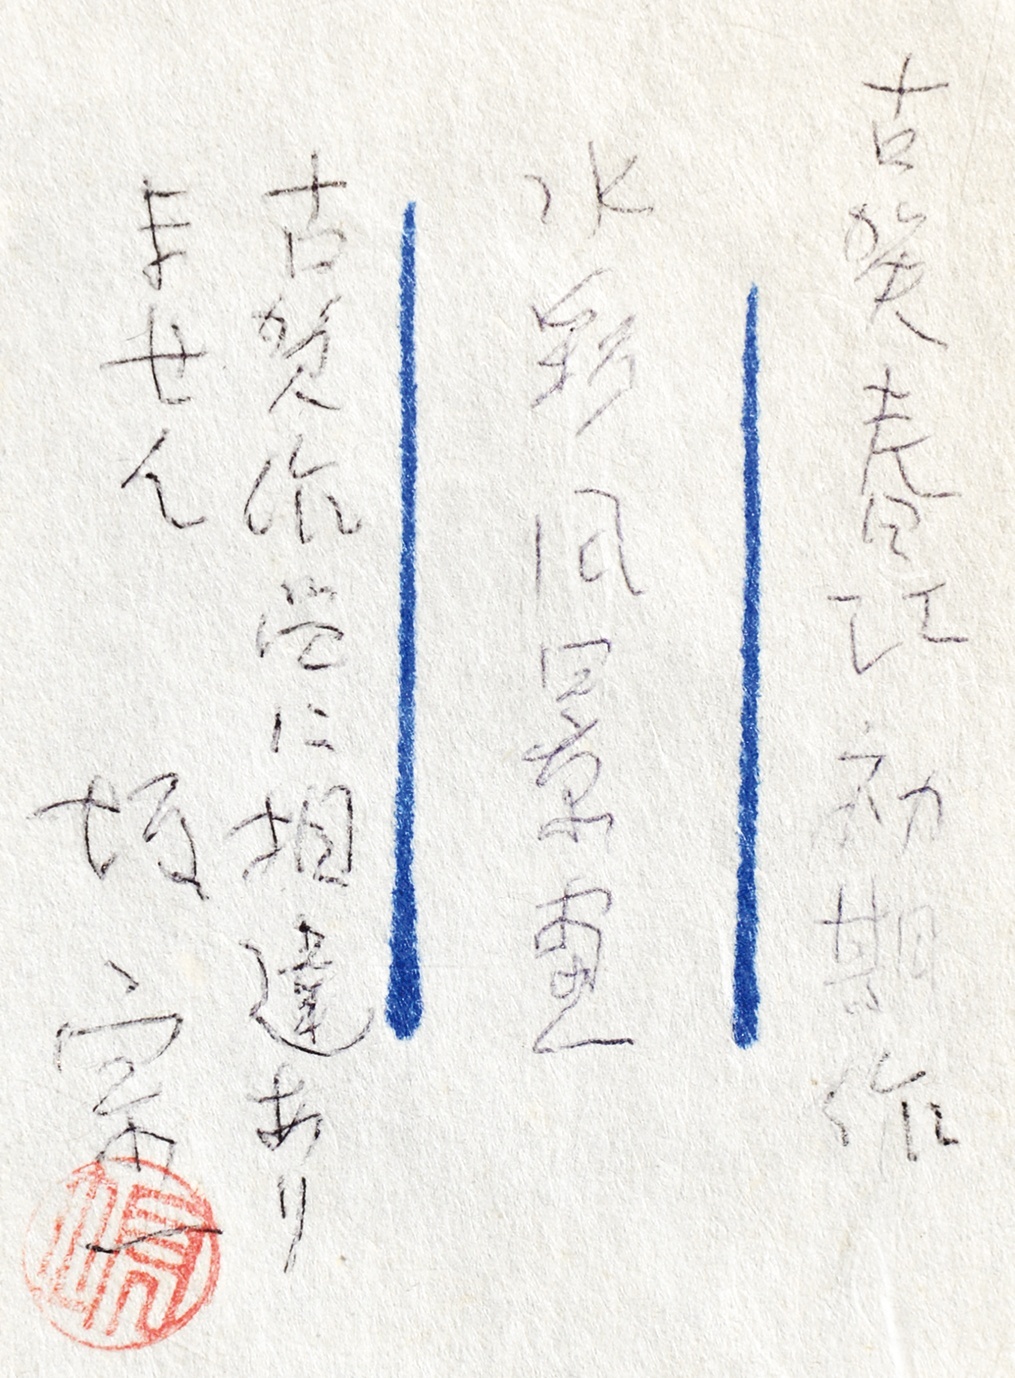 古賀春江初期作
水彩風景画
古賀作学に相違あり
ません
坂宗一